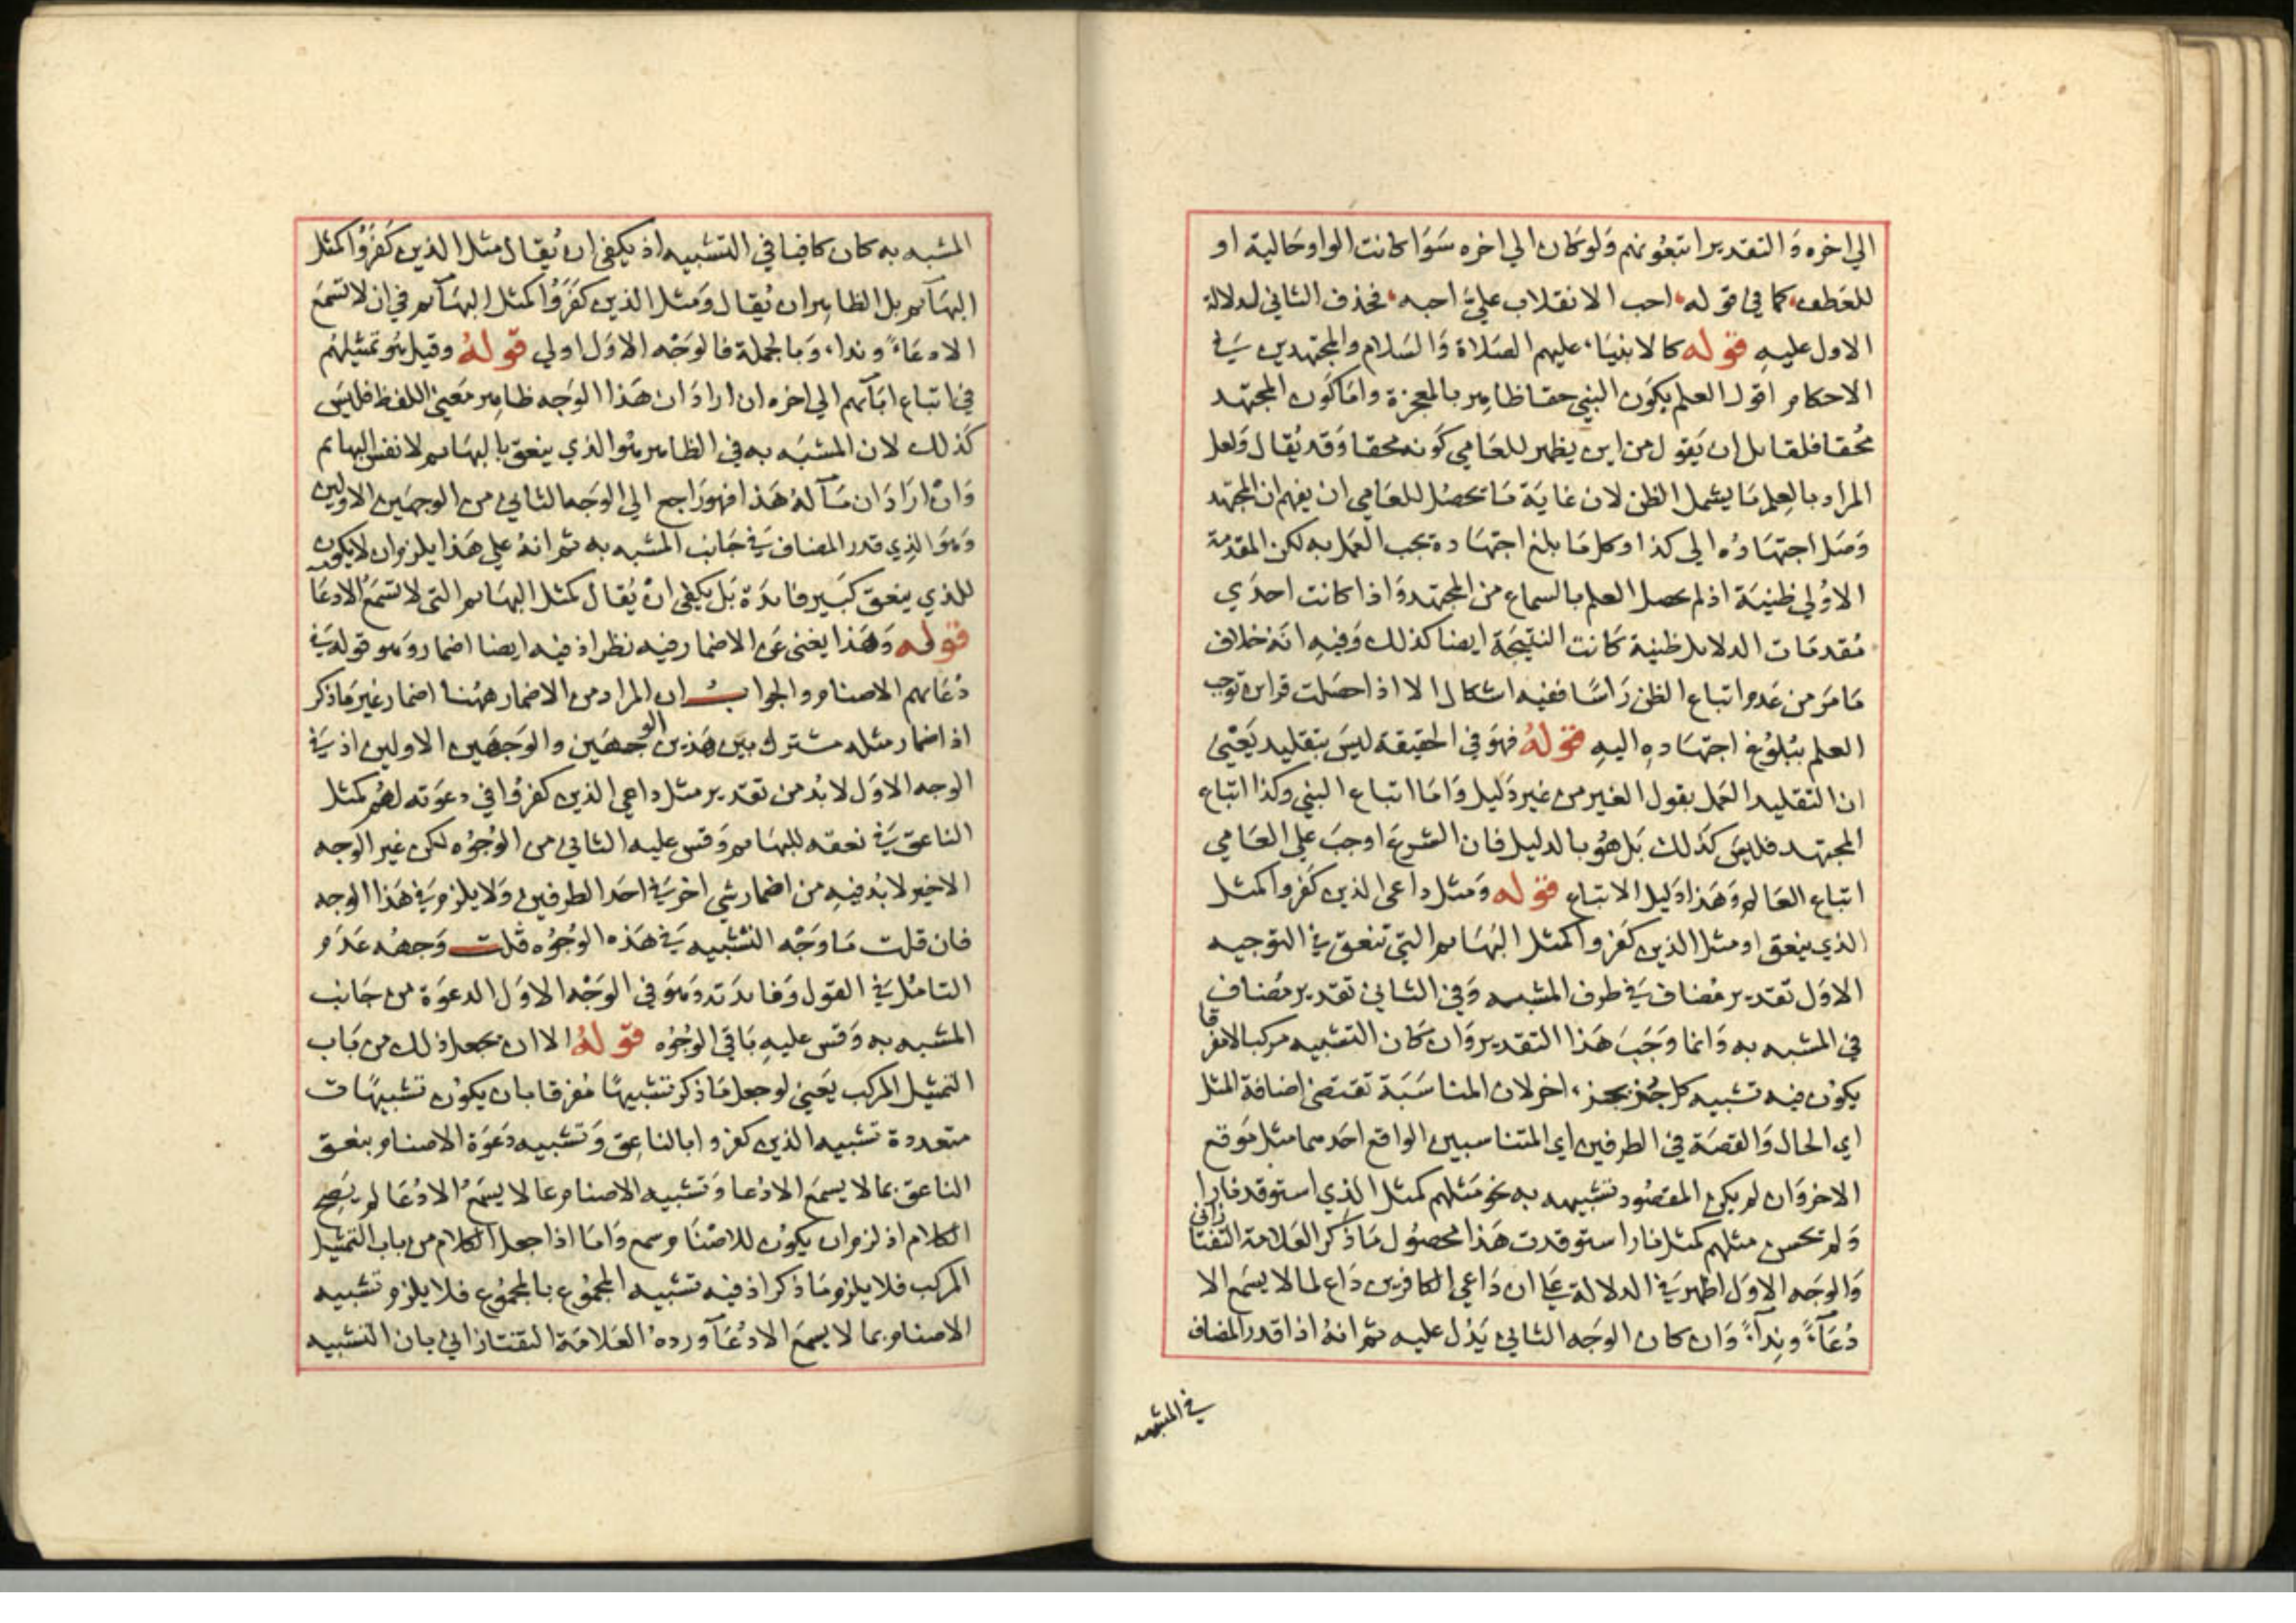 الي اخره وَالتقدير اتبعُونهم وَلوكان الي اخره سَوَا كانت الواو حَالية او
للعَطف كما في قوله احب الانقلاب علي احبه فحذف الثاني لدلالة
الاول عليهِ قوله كالانبيَاء عليهم الصَلاة وَالسَلام والمجتهدين في
الاحكام اقول العلم بكوَن النبي حقا ظاهِر بالمعجزة وامَا كَون المجتهد
مُحقا فلقائل ان يَقول من اين يظهر للعَامي كوَنه محقا وَقد يُقال وَلعل
المراد بالعِلم مَا يشمل الظن لان غايَة مَا يحصُل للعَامي ان يفهم ان المجتهد
وَصَل اجتهَادُه الي كذا وكل مَا بلغ اجتهَاده يجب العَمل به لكن المقدمة
الاوُلي ظنيَة اذ لم يحصل العلم بالسماع من المجتهد وَاذا كانت احدَي
مُقدمَات الدلايل ظنية كَانت النتيجَة ايضا كذلك وَفيهِ انهَ خلاف
مَا مَرَ من عَدم اتباع الظن رَاسًا ففيه اشكال الا اذا حصَلت قراين توجب
العلم ببُلوُغ اجتهَادِهِ اليهِ قولهُ فهوَ في الحقيقة ليسَ بتقليد يَعْني
ان التقليد العَمل بقول الغير من غير دَليل وَامَا اتباع النبي وكذا اتباع
المجتهد فليسَ كَذلك بَل هوُ بالدليل فان الشرعَ اوجبَ علي العَامي
اتباع العَالم وَهَذا دَليل الاتباع قوله وَمثل داعي الذين كَفروا كمثل
الذي ينعق او مثل الذين كَفروا كمثل البَهَايم التي تنعق في التوجيه
الاوَل تقدير مُضاف في طرف المشبه وَفي الثاني تقدير مضاف
في المشبه به وَانما وَجَبَ هَذا التقدير وَان كَان التشبيه مركبا لامفرقا
يكوُن فيه تشبيه كل جُزء بجزء اخر لان المناسَبَة تقتضي اضافة المثل
اي الحال وَالقصَة في الطرفين اي المتناسبين الواقع احَدهما مثل مَوقع
الاخر وَان لم يكن المقصُود تشبيهه به نحو مَثلهم كمثل الذِي استوقد نارا
وَلم تحسن مثلهم كمثل نار استوقدت هَذا محصُول مَا ذكر العَلامة التفتازاني
وَالوجَه الاول اظهر في الدلالة عَلي ان دَاعي الكافرين دَاع لما لا يسمَع الا
دُعَآءً ونِدآءً وَان كان الوجَه الثاني يَدُل عليه ثم انهُ اذا قدر المضاف
في المشبه
المشبه به كان كافيا في التشبيه اذ يكفي ان يُقال مثل الذين كَفرَوُا كمثل
البهَآيم بل الظاهِر ان يُقال وَمثل الذين كَفرَوُا كمثل البهَآيم في ان لا تسمَع
الا دعَاءً ونداء وَبالجملة فالوَجْه الاوَل اولي قولهُ وقيل هُو تمثيلهُم
في اتباع ابَآئهم الي اخره ان ارادَ ان هَذا الوَجه ظاهِر مَعنيَ اللفظ فليسَ
كَذلك لان المشبَه به في الظاهر هُو الذي ينعق بالبهَايم لا نفس البهايم
وَانْ ارَادَ ان مَآلهُ هَذا فهو رَاجع الي الوَجه الثاني من الوجهَين الاولين
وَهوَ الذِي قدر المضاف في جَانب المشبه به ثم انهُ علي هَذا يلزم ان لا يكون
للذي ينعق كبَير فايدَة بَل يكفي انْ يُقال كمثل البهَايم التي لا تسمَعُ الا دعَآء
قوله وَهَذا يغني عَن الاضمار فيه نظر اذ فيه ايضا اضمار وَهو قوله في
دُعَائهم الاصنام والجوابُ ان المراد من الاضمار ههُنا اضمار غير مَا ذكر
اذ اضمار مثله مشترك بيَن هَذين الوجهيَن والوَجهَين الاولين اذ في
الوجه الاوَل لا بُد من تقدير مثل داعي الذين كفروُا في دعوَته لهُم كمثل
الناعق في نعقه للبهَايم وَقس عليه الثاني من الوُجُوه لكن غير الوجه
الاخير لا بُد فيهِ من اضمار شي اخر في احَد الطرفين وَلا يلزم في هَذا الوجه
فان قلت مَا وَجْه التشبيه في هَذه الوُجُوه قُلت وَجههُ عَدَم
التامُل في القول وَفايدَته وَهوَ في الوَجْه الاوَل الدعوَة من جَانب
المشبه به وَقس عليهِ بَاقي الوُجُوه قولهُ الا ان يجعل ذلك من بَاب
التمثيل المركب يَعني لو جعل مَا ذكر تشبيهًا مُفرقا بان يكوُن تشبيهًات
متعددة تشبيه الذين كفروا بالناعِق وَتشبيه دَعوَة الاصنام بنعق
الناعق بما لا يسمَع الا دُعا وَتشبيه الاصنام بما لا يسمَعُ الا دُعَا لم يَصِح
الكلام اذ لزم ان يكوُن للاصْنَام سمع وَامَا اذا جعل الكلام من باب التمثيل
المركب فلا يلزم مَا ذكر اذ فيه تشبيه المجمُوع بالمجمُوع فلا يلزم تشبيه
الاصنام بما لا يسمَع الا دُعَآ وردهُ العَلامَة التفتازاني بان التشبيه